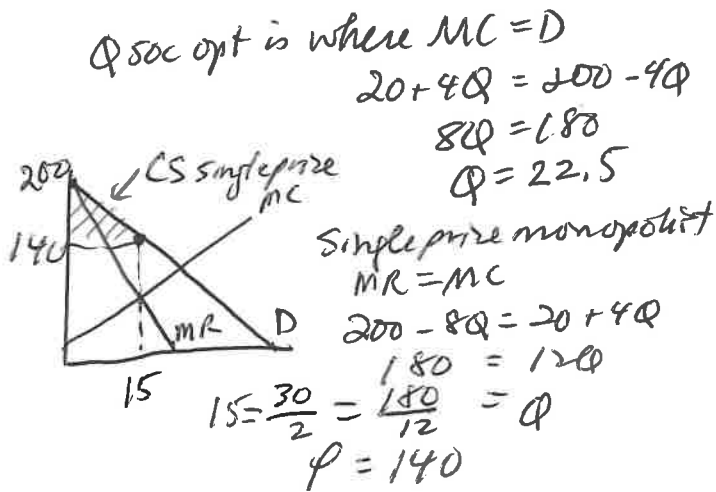 Q soc opt is where MC = D
20 + 4Q = 200 - 4Q
8Q = 180
Q = 22.5
200
CS single price
MC
140
MR
D
15
Single price monopolist
MR = MC
200 - 8Q = 20 + 4Q
180 = 12Q
15 = 30/2 = 180/12 = Q
P = 140